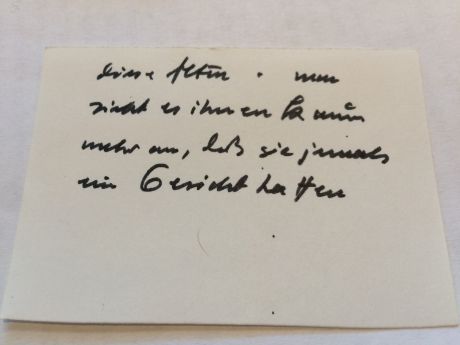 diese Alten. man
sieht es ihnen kaum
mehr an, daß sie jemals
ein Gesicht hatten